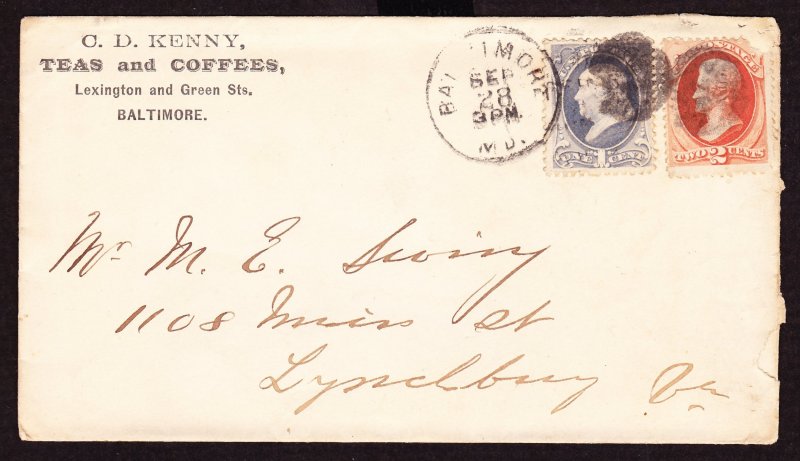 C. D. KENNY,
TEAS and COFFEES,
Lexington and Green Sts.
BALTIMORE.
BALTIMORE
SEP
28
3 PM
MD.
ONE 1 CENT
TWO 2 CENTS
Mr. M. E.
1108 Main St
Lynchburg Va